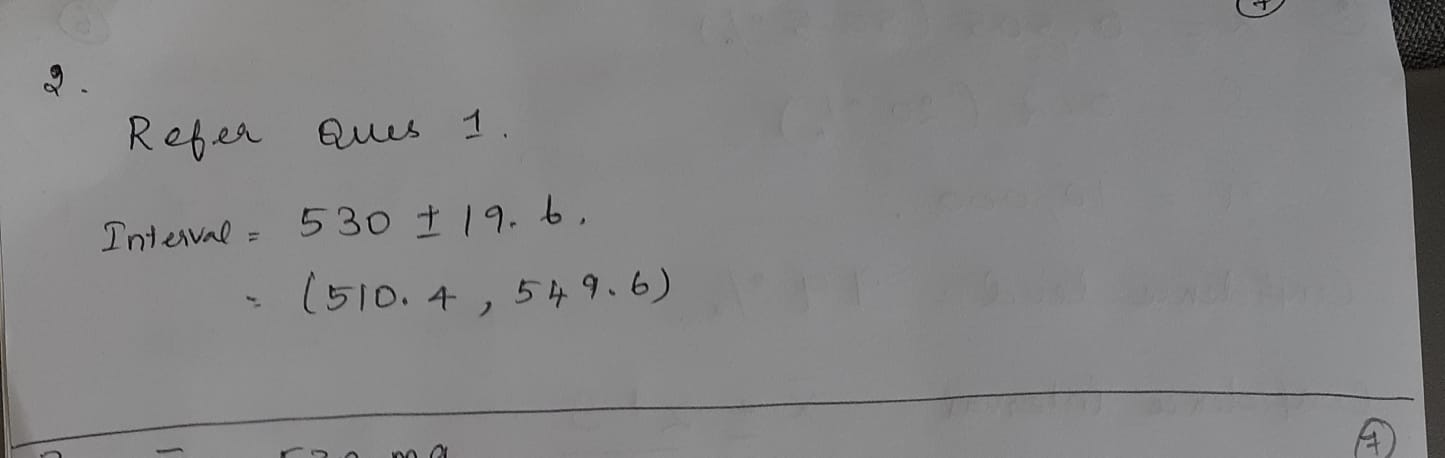 2.
Refer Ques 1.
Interval = 530 ± 19.6.
= (510.4, 549.6)